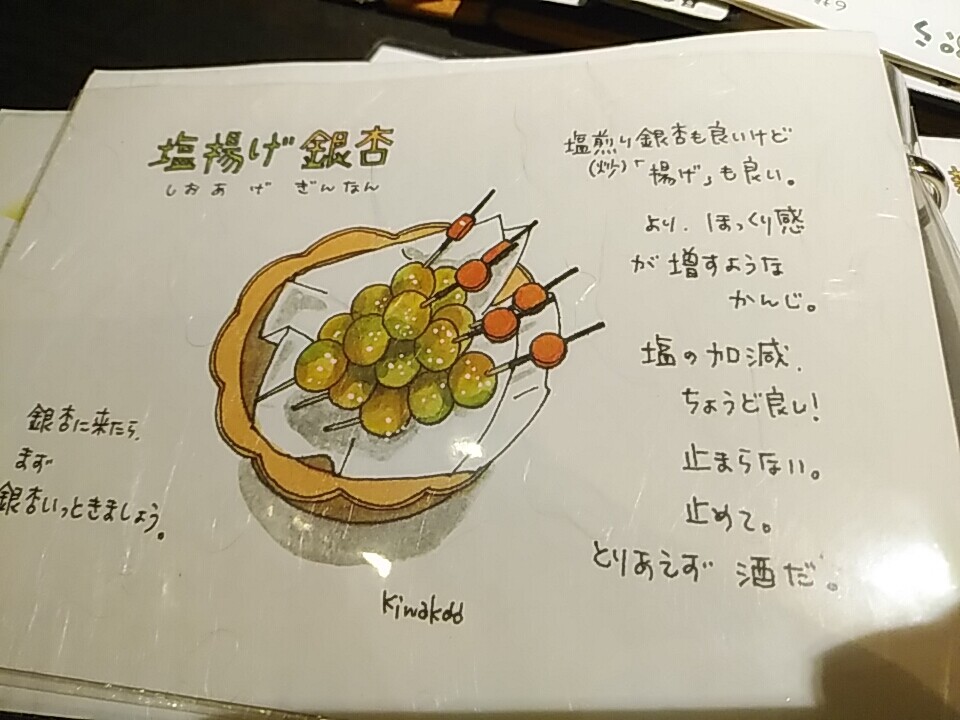 塩揚げ銀杏
しおあげ ぎんなん
塩煎り銀杏も良いけど
(炒)「揚げ」も良い。
より、ほっくり感
が増すような
かんじ。
塩の加減、
ちょうど良し!
止まらない。
止めて。
とりあえず 酒だ。
銀杏に来たら、
まず
銀杏いっときましょう。